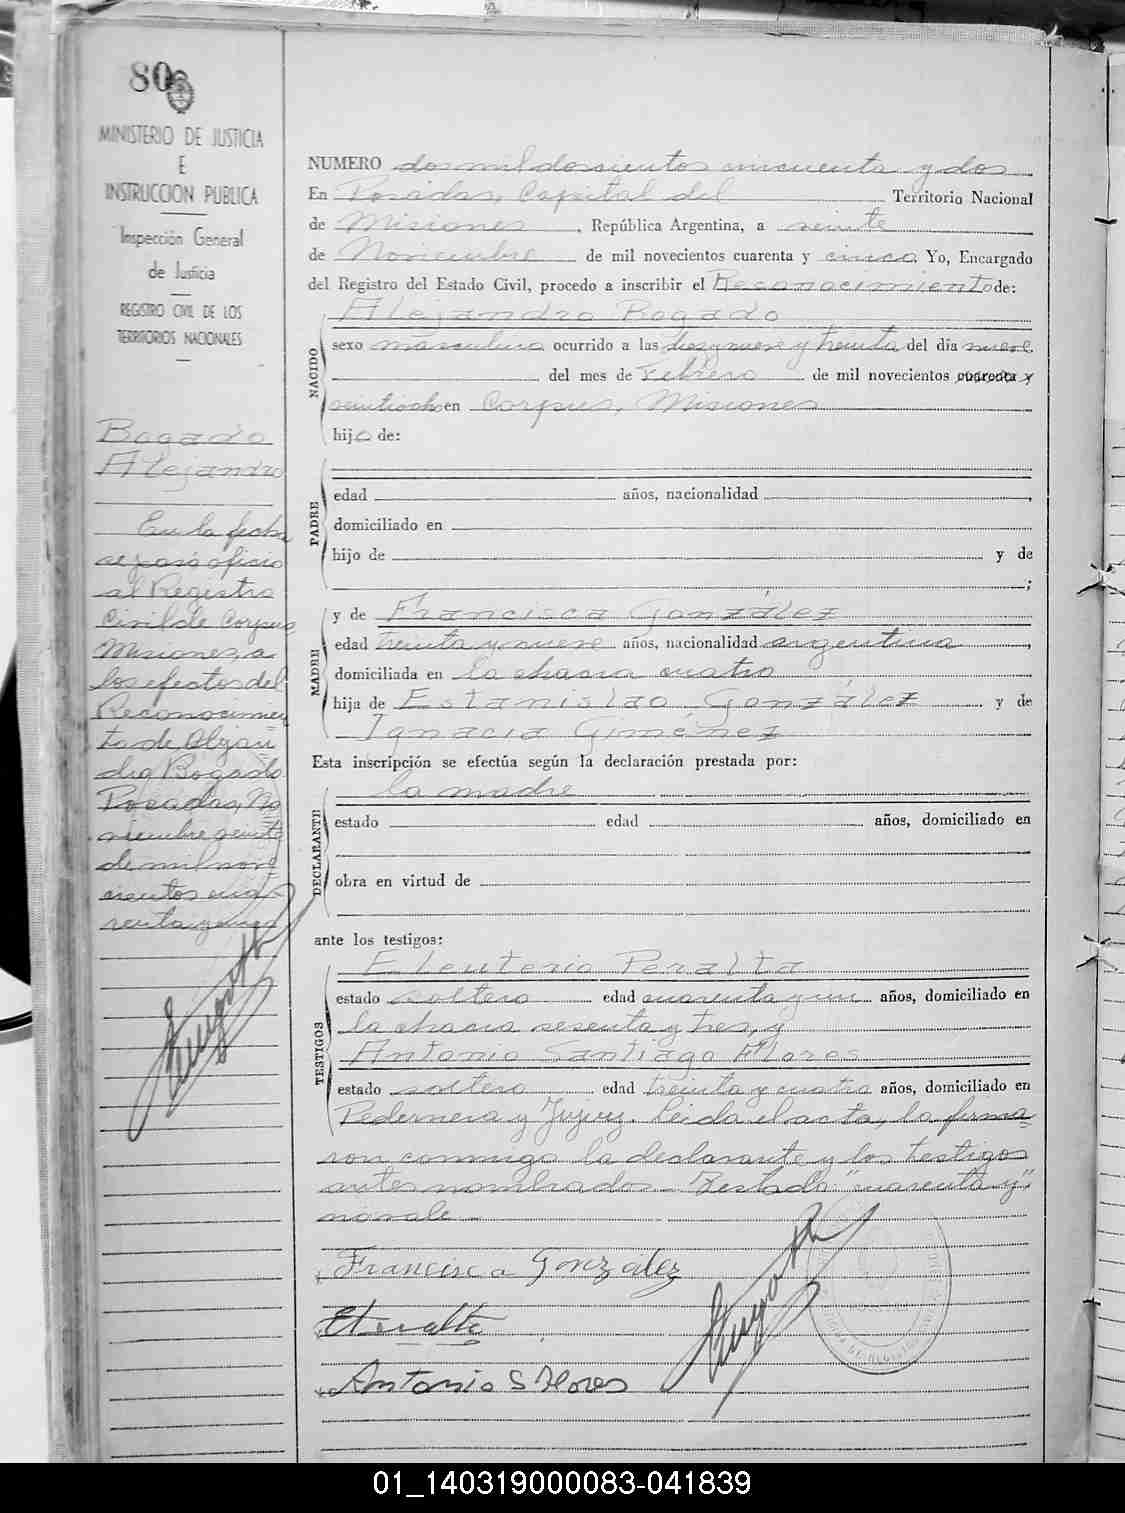 80
MINISTERIO DE JUSTICIA
E
INSTRUCCION PUBLICA
Inspección General
de Justicia
REGISTRO CIVIL DE LOS
TERRITORIOS NACIONALES
Bogado
Alejandro
En la fecha
se pasó oficio
al Registro
Civil de Corpus
Misiones, a
los efectos del
Reconocimien
to de Alejan
dro Bogado
Posadas, No
viembre veinte
de mil nove
cientos cua
renta y cinco
NUMERO dos mil doscientos cincuenta y dos
En Posadas, Capital del Territorio Nacional
de Misiones, República Argentina, a veinte
de Noviembre de mil novecientos cuarenta y cinco. Yo, Encargado
del Registro del Estado Civil, procedo a inscribir el Reconocimiento de:
NACIDO
Alejandro Bogado
sexo masculino ocurrido a las diez y nueve y treinta del día nueve
del mes de Febrero de mil novecientos cuarenta y
veintiocho en Corpus, Misiones
hijo de:
PADRE
edad años, nacionalidad
domiciliado en
hijo de y de
;
MADRE
y de Francisca González
edad treinta y nueve años, nacionalidad argentina
domiciliada en la chacra cuatro
hija de Estanislao González y de
Ignacia Giménez
Esta inscripción se efectúa según la declaración prestada por:
DECLARANTE
la madre
estado edad años, domiciliado en
obra en virtud de
ante los testigos:
TESTIGOS
Eleuterio Peralta
estado soltero edad cuarenta y un años, domiciliado en
la chacra sesenta y tres, y
Antonio Santiago Flores
estado soltero edad treinta y cuatro años, domiciliado en
Pedernera y Jujuy. Leida el acta, la firma=
ron conmigo la declarante y los testigos
antes nombrados.- Testado: "cuarenta y"
no vale.-
Francisca González
Antonio S Flores
01_140319000083-041839